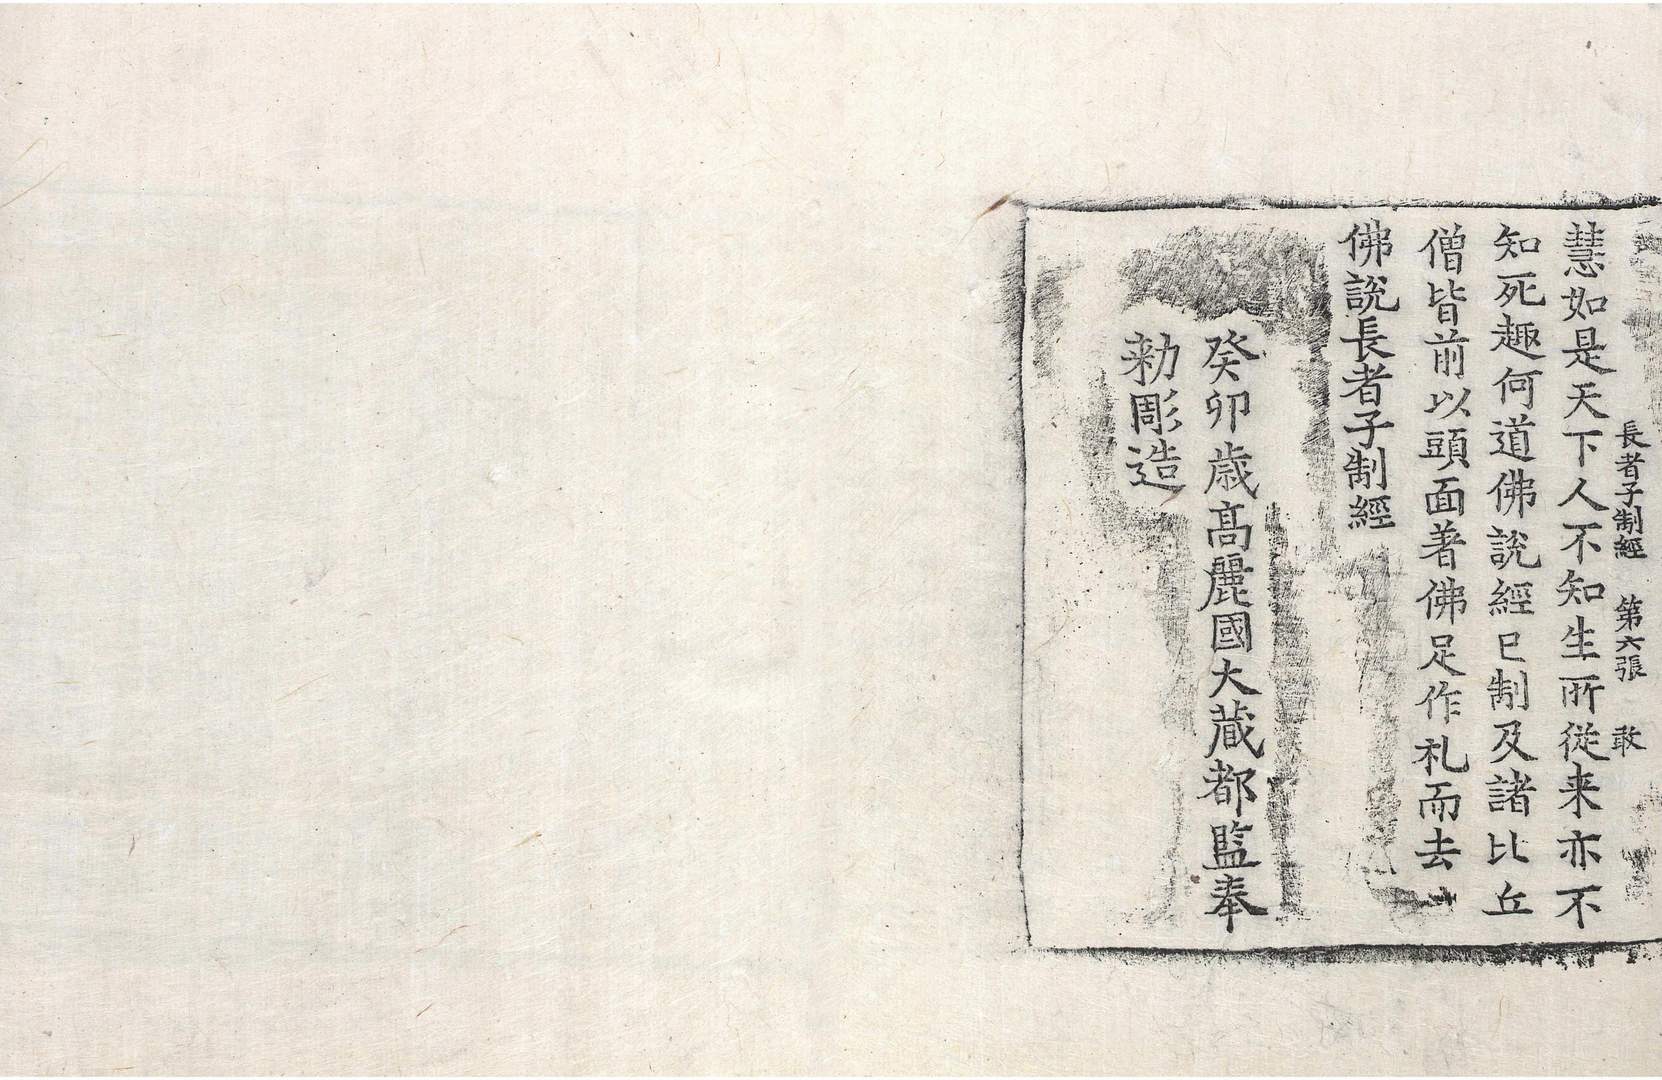 長者子制經 第六張 敢
慧如是天下人不知生所從来亦不
知死趣何道佛說經已制及諸比丘
僧皆前以頭面著佛足作礼而去
佛說長者子制經
癸卯歳髙麗國大蔵都監奉
勑彫造